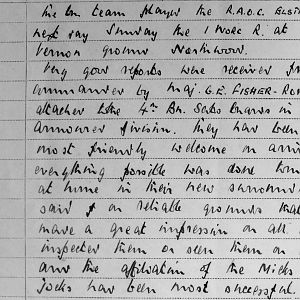 The Bn team played the R.A.O.C. Elst
next day Sunday the 1 Worc R. at
Vernon ground Northwood.
Very good reports were received fr
Commander by Maj. G.E. FISHER-RO
attached to the 4th Bn. Scots Guards in
armoured division. They had been
most friendly welcome on arri
everything possible was done to m
at home in their new surround
said on reliable grounds that
make a great impression on all
inspected them or seen them on
and the affiliation of the Micks
Jocks has been most successful.